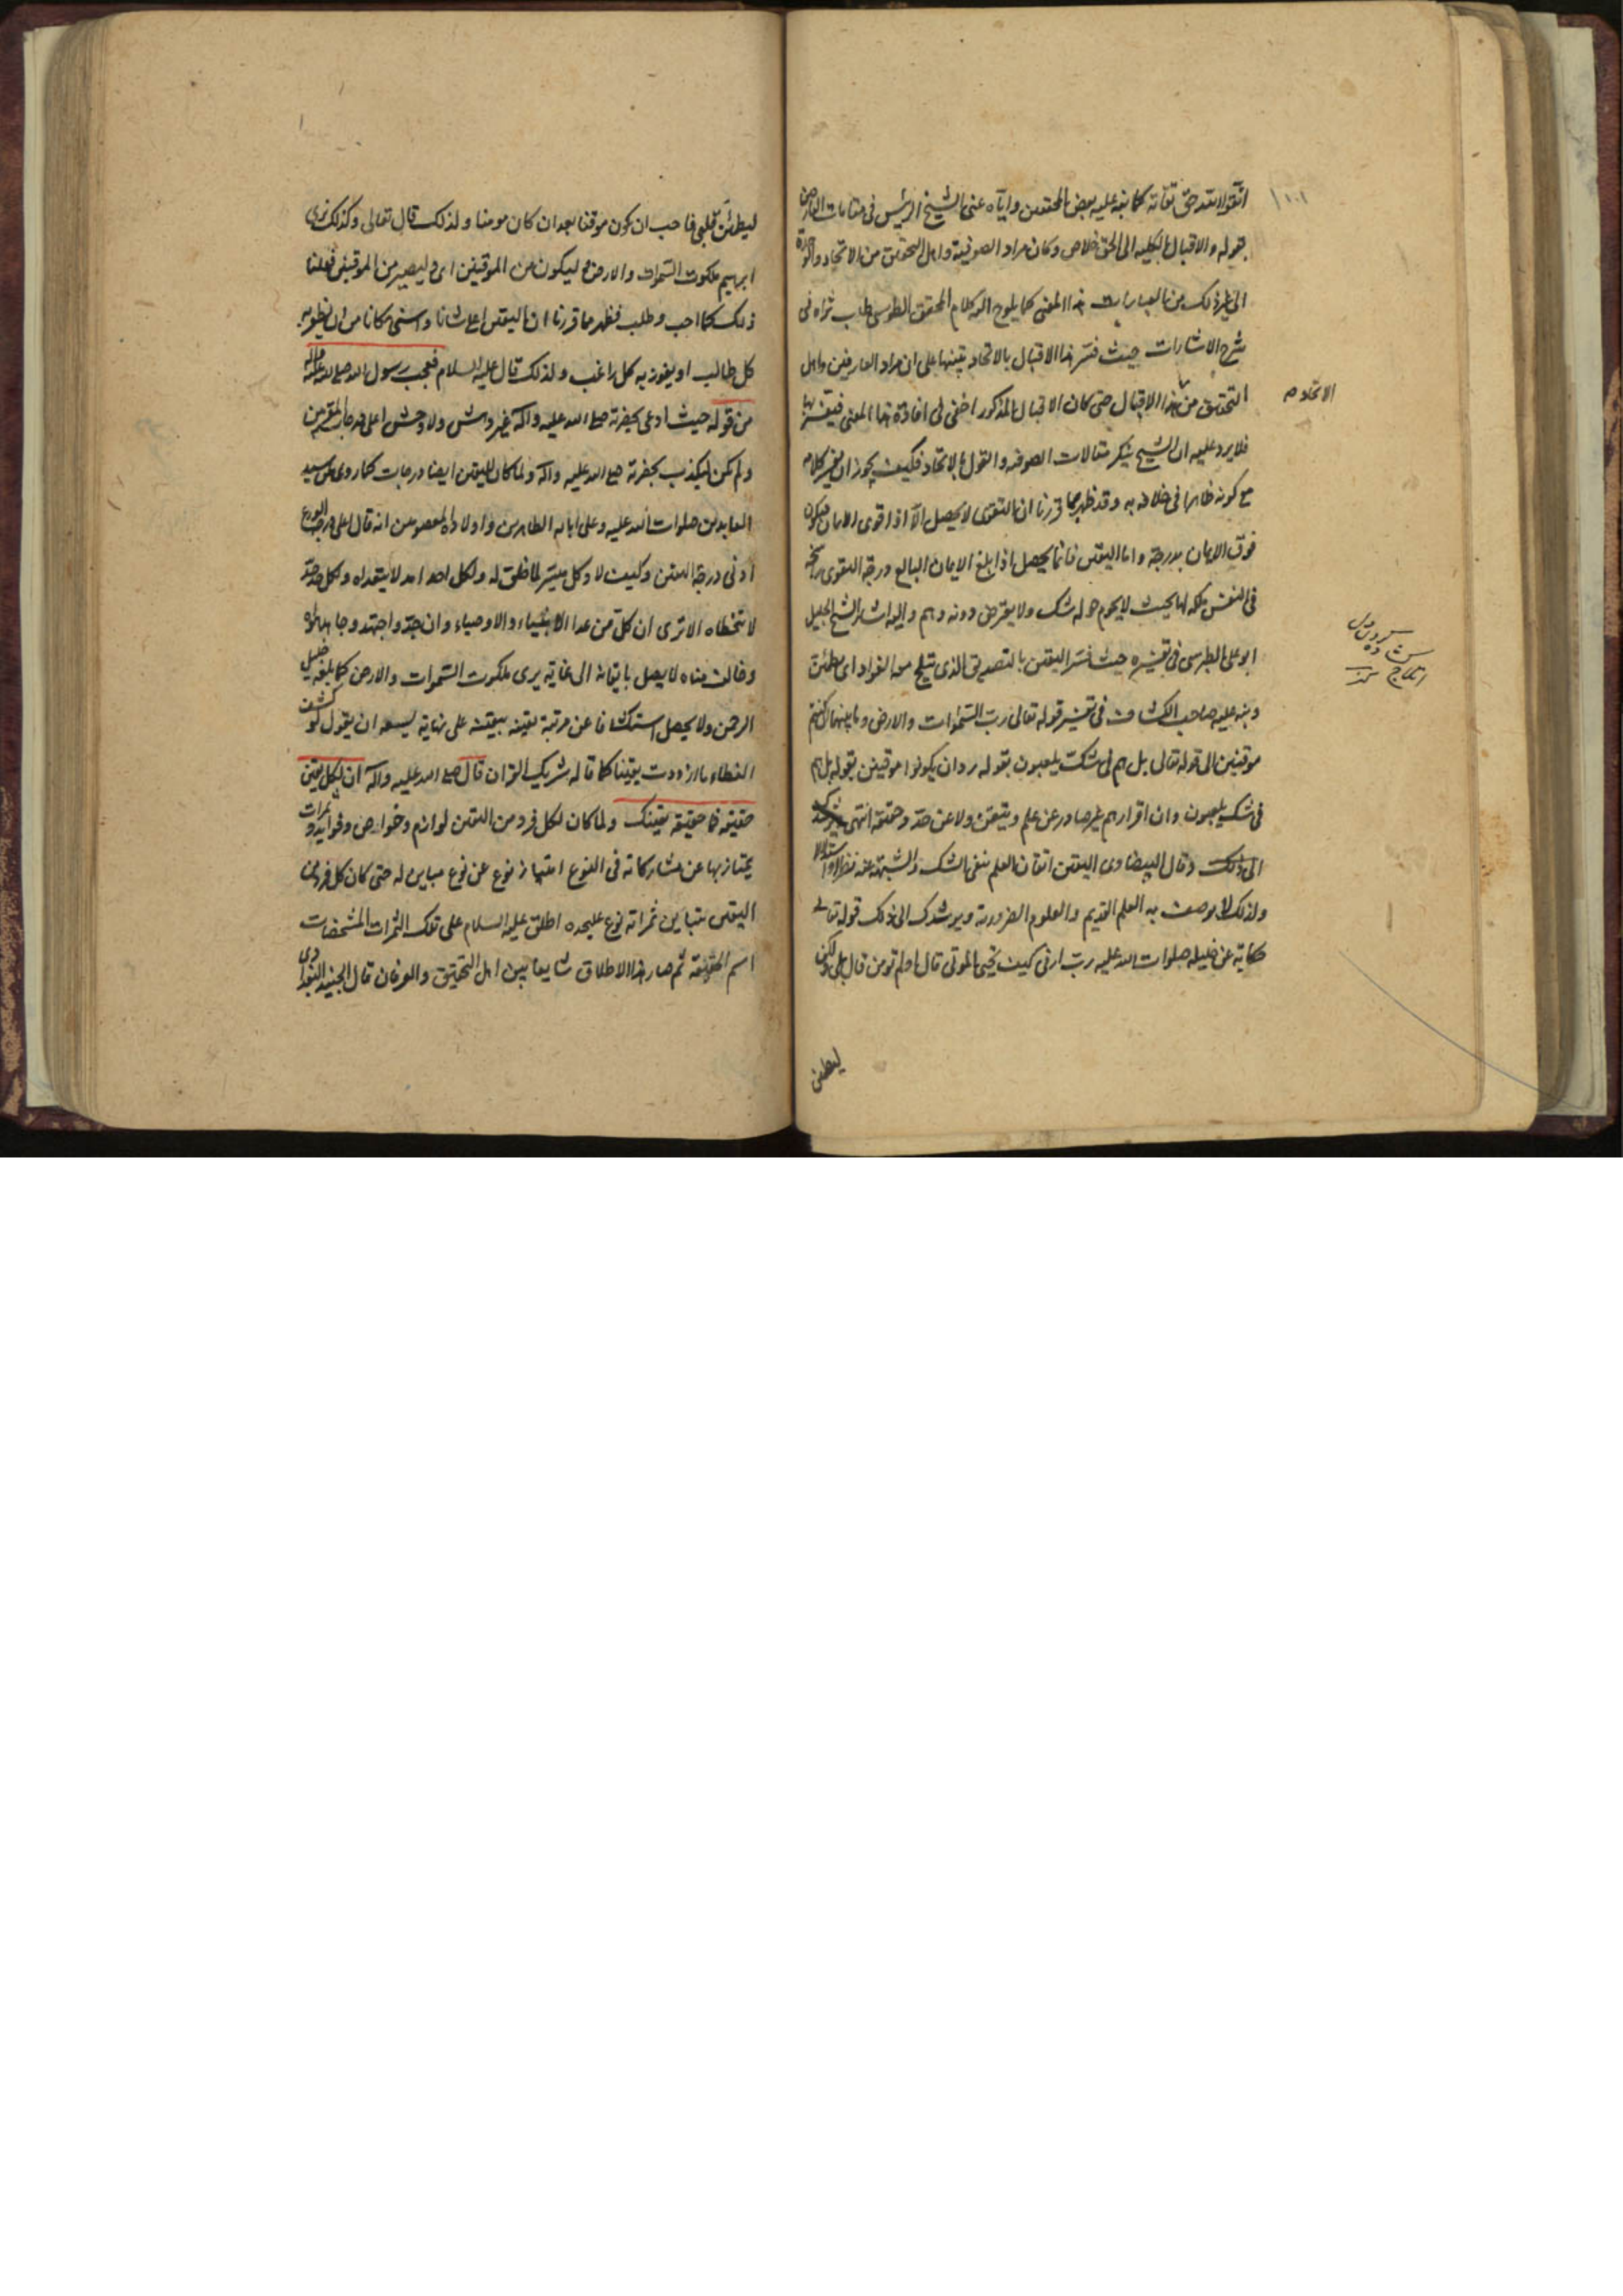 اتقوا الله حق تقاته كما نبه عليه بعض المحققين واياه عنى الشيخ الرئيس فى مقامات العارفين
بقوله والاقبال بالكليه الى الحق خلاص وكان مراد الصوفية واهل التحقيق من الاتحاد والوحدة
الى غير ذلك من العبارات هذا المعنى كما يلوح اليه كلام المحقق الطوسى طاب ثراه فى
شرح الاشارات حيث فسر هذا الاقبال بالاتحاد تنبيها على ان مراد العارفين واهل
التحقيق من هذا الاقبال حتى كان الاقبال المذكور اخفى فى افادة هذا المعنى فيفسر بها
الاتحاد م
فلا يرد عليه ان الشيخ ينكر مقالات الصوفيه والقول بالاتحاد فكيف يجوز ان يفسر كلامه
مع كونه ظاهرا فى خلافه به وقد ظهر مما قررنا ان التقوى لا يحصل الا اذا قوى الايمان فيكون
فوق الايمان بدرجة واما اليقين فانما يحصل اذا بلغ الايمان البالغ درجة التقوى راسخة
فى النفس ملكة لها بحيث لا يحوم حوله شك ولا يعترض دونه وهم واليه اشار الشيخ الجليل
ابو على الطبرسى فى تفسيره حيث فسر اليقين بالتصديق الذى تثلج معه الفؤاد اى يطمئن
ونبه عليه صاحب الكشاف فى تفسير قوله تعالى رب السموات والارض وما بينهما ان كنتم
موقنين الى قوله تعالى بل هم فى شك يلعبون بقوله رد ان يكونوا موقنين بقوله بل هم
فى شك يلعبون وان اقرارهم غير صادر عن علم وتيقن ولا عن جد وحقيقة انتهى
الى ذلك وقال البيضاوى اليقين اتقان العلم بنفى الشك والشبهة عنه نظرا واستدلالا
ولذلك لا يوصف به العلم القديم والعلوم الضرورية ويرشدك الى ذلك قوله تعالى
حكاية عن خليله صلوات الله عليه رب ارنى كيف تحيى الموتى قال اولم تؤمن قال بلى ولكن
ليطمئن
ليطمئن قلبى فاحب ان يكون موقنا بعد ان كان مومنا ولذلك قال تعالى وكذلك نرى
ابرهيم ملكوت السموات والارض وليكون من الموقنين اى وليصير من الموقنين فعلنا
ذلك كما احب وطلب فظهر مما قررنا ان اليقين اعلى شانا واسنى مكانا من ان يظفر به
كل طالب او يفوز به كل راغب ولذلك قال عليه السلام فعجب رسول الله صلى الله عليه وآله
من قوله حيث ادعى بحضرته صلى الله عليه وآله غير داهش ولا وحش اعلى درجات المقربين
ولم يكن ليكذب بحضرته صلى الله عليه وآله ولما كان لليقين ايضا درجات كما روى عن سيد
العابدين صلوات الله عليه وعلى ابائه الطاهرين واولاده المعصومين انه قال اعلى درجة الورع
ادنى درجة اليقين وكيف لا وكل ميسر لما خلق له ولكل احد امد لا يتعداه ولكل حد
لا يتخطاه الا ترى ان كل من عدا الانبياء والاوصياء وان جد واجتهد وجاهد
وخالف مناه لا يصل بايقانه الى غاية يرى ملكوت السموات والارض كما بلغه خليل
الرحمن ولا يحصل استكشافا عن مرتبة يقينه بيقينه على نهاية يسعه ان يقول لو كشف
الغطاء ما ازددت يقينا كما قاله شريك القران قال صلى الله عليه وآله ان لكل يقين
حقيقة فما حقيقة يقينك ولما كان لكل فرد من اليقين لوازم وخواص وفوايد وثمرات
يمتاز بها عن مشاركاته فى النوع امتياز نوع عن نوع مباين له حتى كان كل فرد من
اليقين بتباين ثمراته نوع عليحده اطلق عليه السلام على تلك الثمرات المشخصات
اسم الحقيقة ثم صار هذا الاطلاق شايعا بين اهل التحقيق والعرفان قال الجنيد البغدادى